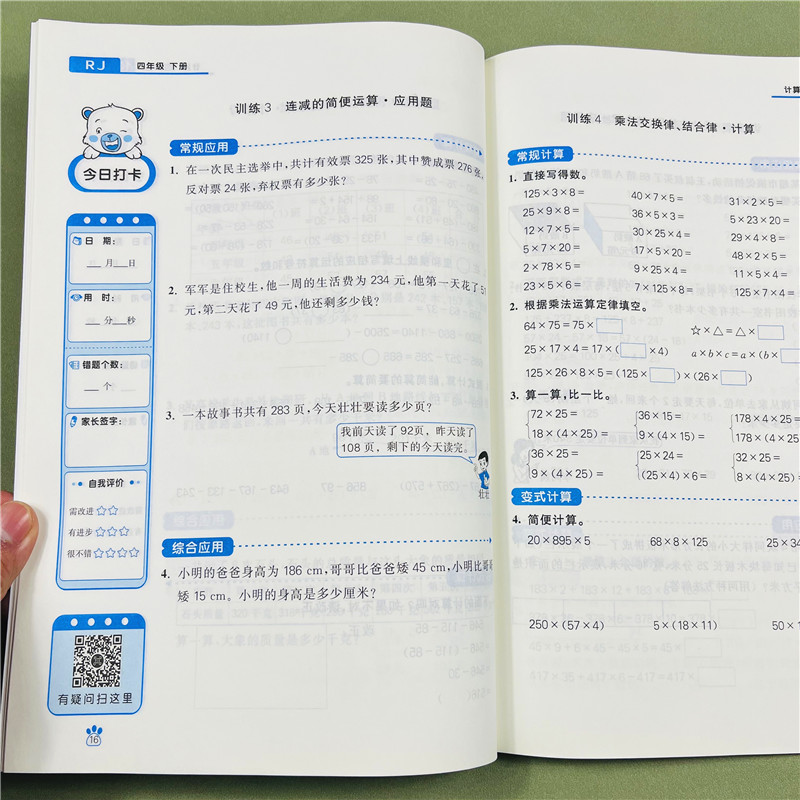 RJ 四年级 下册
训练3 连减的简便运算·应用题
今日打卡
日 期:
月 日
用 时:
分 秒
错题个数:
个
家长签字:
自我评价
需改进☆☆
有进步☆☆☆
很不错☆☆☆☆☆
有疑问扫这里
16
常规应用
1. 在一次民主选举中,共计有效票325张,其中赞成票276张,
反对票24张,弃权票有多少张?
2. 军军是住校生,他一周的生活费为234元,他第一天花了51
元,第二天花了49元,他还剩多少钱?
3. 一本故事书共有283页,今天壮壮要读多少页?
我前天读了92页,昨天读了
108页,剩下的今天读完。
壮壮
综合应用
4. 小明的爸爸身高为186 cm,哥哥比爸爸矮45 cm,小明比哥
矮15 cm。小明的身高是多少厘米?
计算
训练4 乘法交换律、结合律·计算
常规计算
1. 直接写得数。
125×3×8= 40×7×5= 31×2×5=
25×9×8= 36×5×3= 5×23×20=
12×7×5= 30×25×4= 29×4×8=
5×7×20= 17×5×20= 48×2×5=
2×78×5= 9×25×4= 11×5×4=
23×5×6= 7×125×8= 125×7×4=
2. 根据乘法运算定律填空。
64×75=75×□ ☆×△=△×□
25×17×4=17×(□×4) a×b×c=a×(b×□
125×26×8×5=(125×□)×(26×□)
3. 算一算,比一比。
72×25= 36×15= 178×4×25=
18×(4×25)= 9×(4×15)= 178×(4×25
36×25= 25×24= 32×25=
9×(4×25)= (25×4)×6= 8×(4×25)
变式计算
4. 简便计算。
20×895×5 68×8×125 25×34
250×(57×4) 5×(18×11) 50×1